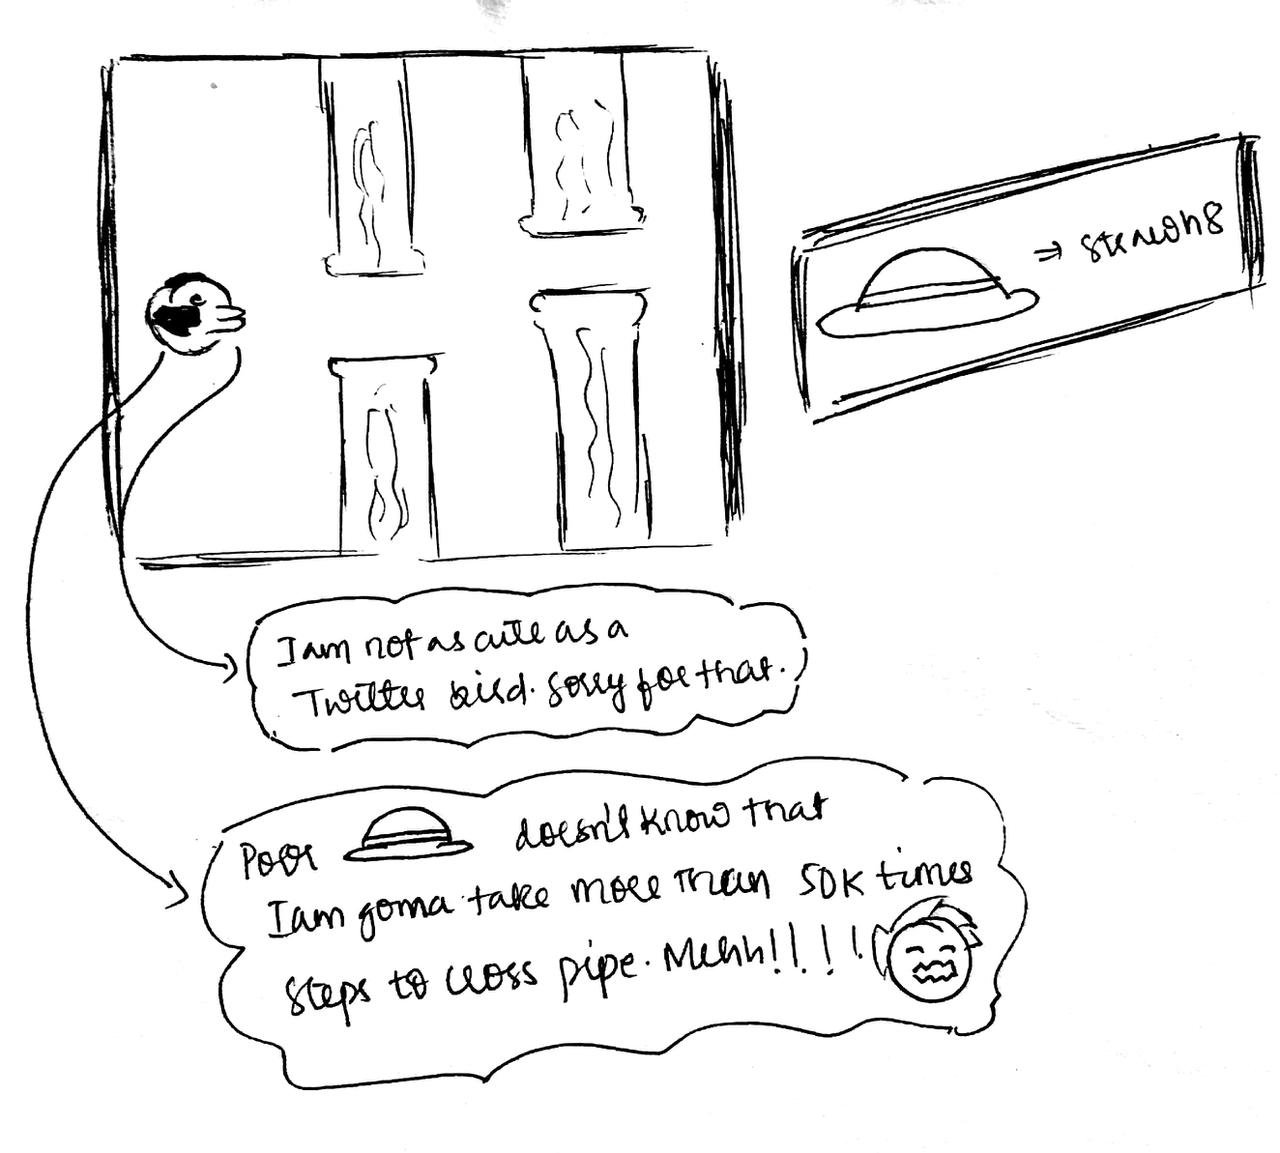 ⇒ strawh8
I am not as cute as a
Twitter bird. Sorry for that.
Poor doesn't know that
I am gonna take more than 50K times
steps to cross pipe. Mehh!!!!!